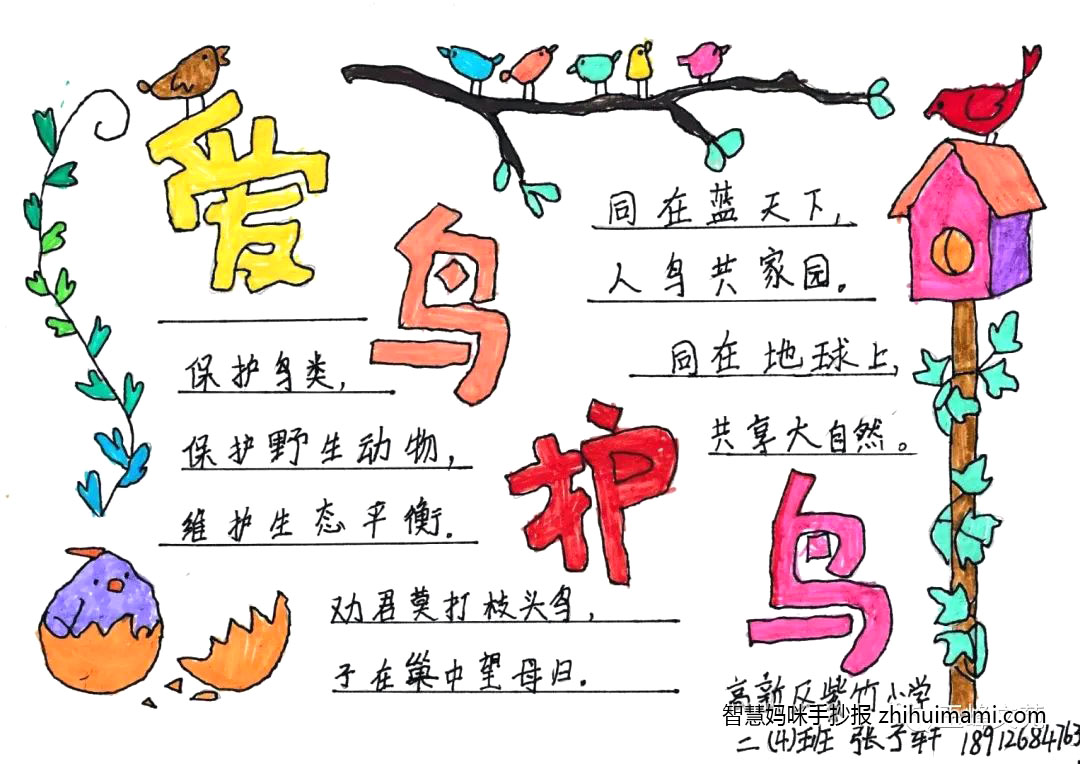 爱鸟护鸟
保护鸟类，
保护野生动物，
维护生态平衡.
劝君莫打枝头鸟，
子在巢中望母归.
同在蓝天下，
人鸟共家园。
同在地球上，
共享大自然。
高新区紫竹小学
智慧妈咪手抄报 zhihuimami.com
二(4)班 张予轩 18912684763